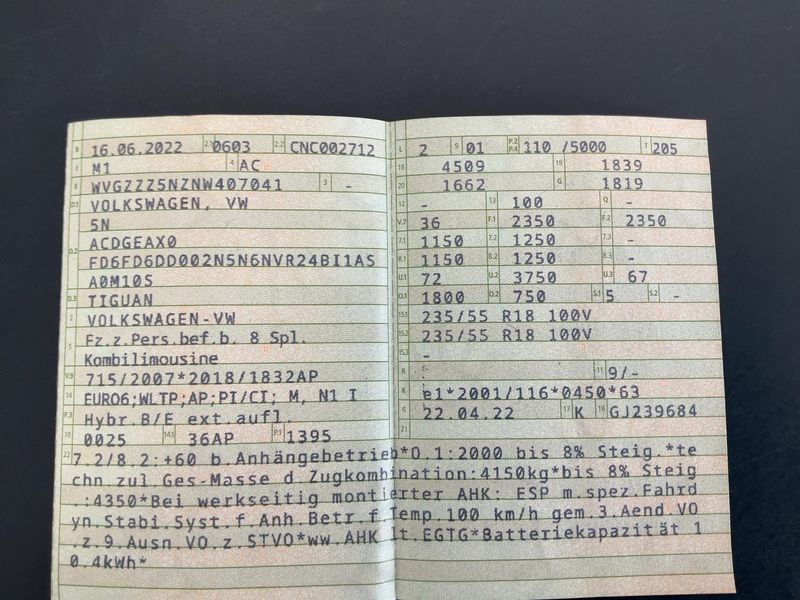 B 16.06.2022 2.1 0603 2.2 CNC002712
J M1 4 AC
E WVGZZZ5NZNW407041 3 -
D.1 VOLKSWAGEN, VW
5N
D.2 ACDGEAX0
FD6FD6DD002N5N6NVR24BI1AS
A0M10S
D.3 TIGUAN
2 VOLKSWAGEN-VW
5 Fz.z.Pers.bef.b. 8 Spl.
Kombilimousine
V.9 715/2007*2018/1832AP
14 EURO6;WLTP;AP;PI/CI; M, N1 I
P.3 Hybr.B/E ext.aufl.
10 0025 14.1 36AP P.1 1395
L 2 9 01 P.2 P.4 110 /5000 T 205
18 4509 19 1839
20 1662 G 1819
12 - 13 100 Q -
V.7 36 F.1 2350 F.2 2350
7.1 1150 7.2 1250 7.3 -
8.1 1150 8.2 1250 8.3 -
U.1 72 U.2 3750 U.3 67
O.1 1800 O.2 750 S.1 5 S.2 -
15.1 235/55 R18 100V
15.2 235/55 R18 100V
15.3 -
R 11 9/-
K e1*2001/116*0450*63
6 22.04.22 17 K 16 GJ239684
21
22 7.2/8.2:+60 b.Anhängebetrieb*O.1:2000 bis 8% Steig.*te
chn zul Ges-Masse d Zugkombination:4150kg*bis 8% Steig
.:4350*Bei werkseitig montierter AHK: ESP m.spez.Fahrd
yn.Stabi.Syst.f.Anh.Betr.f.Temp.100 km/h gem.3.Aend VO
.z.9.Ausn.VO.z.STVO*ww.AHK lt.EGTG*Batteriekapazität 1
0.4kWh*